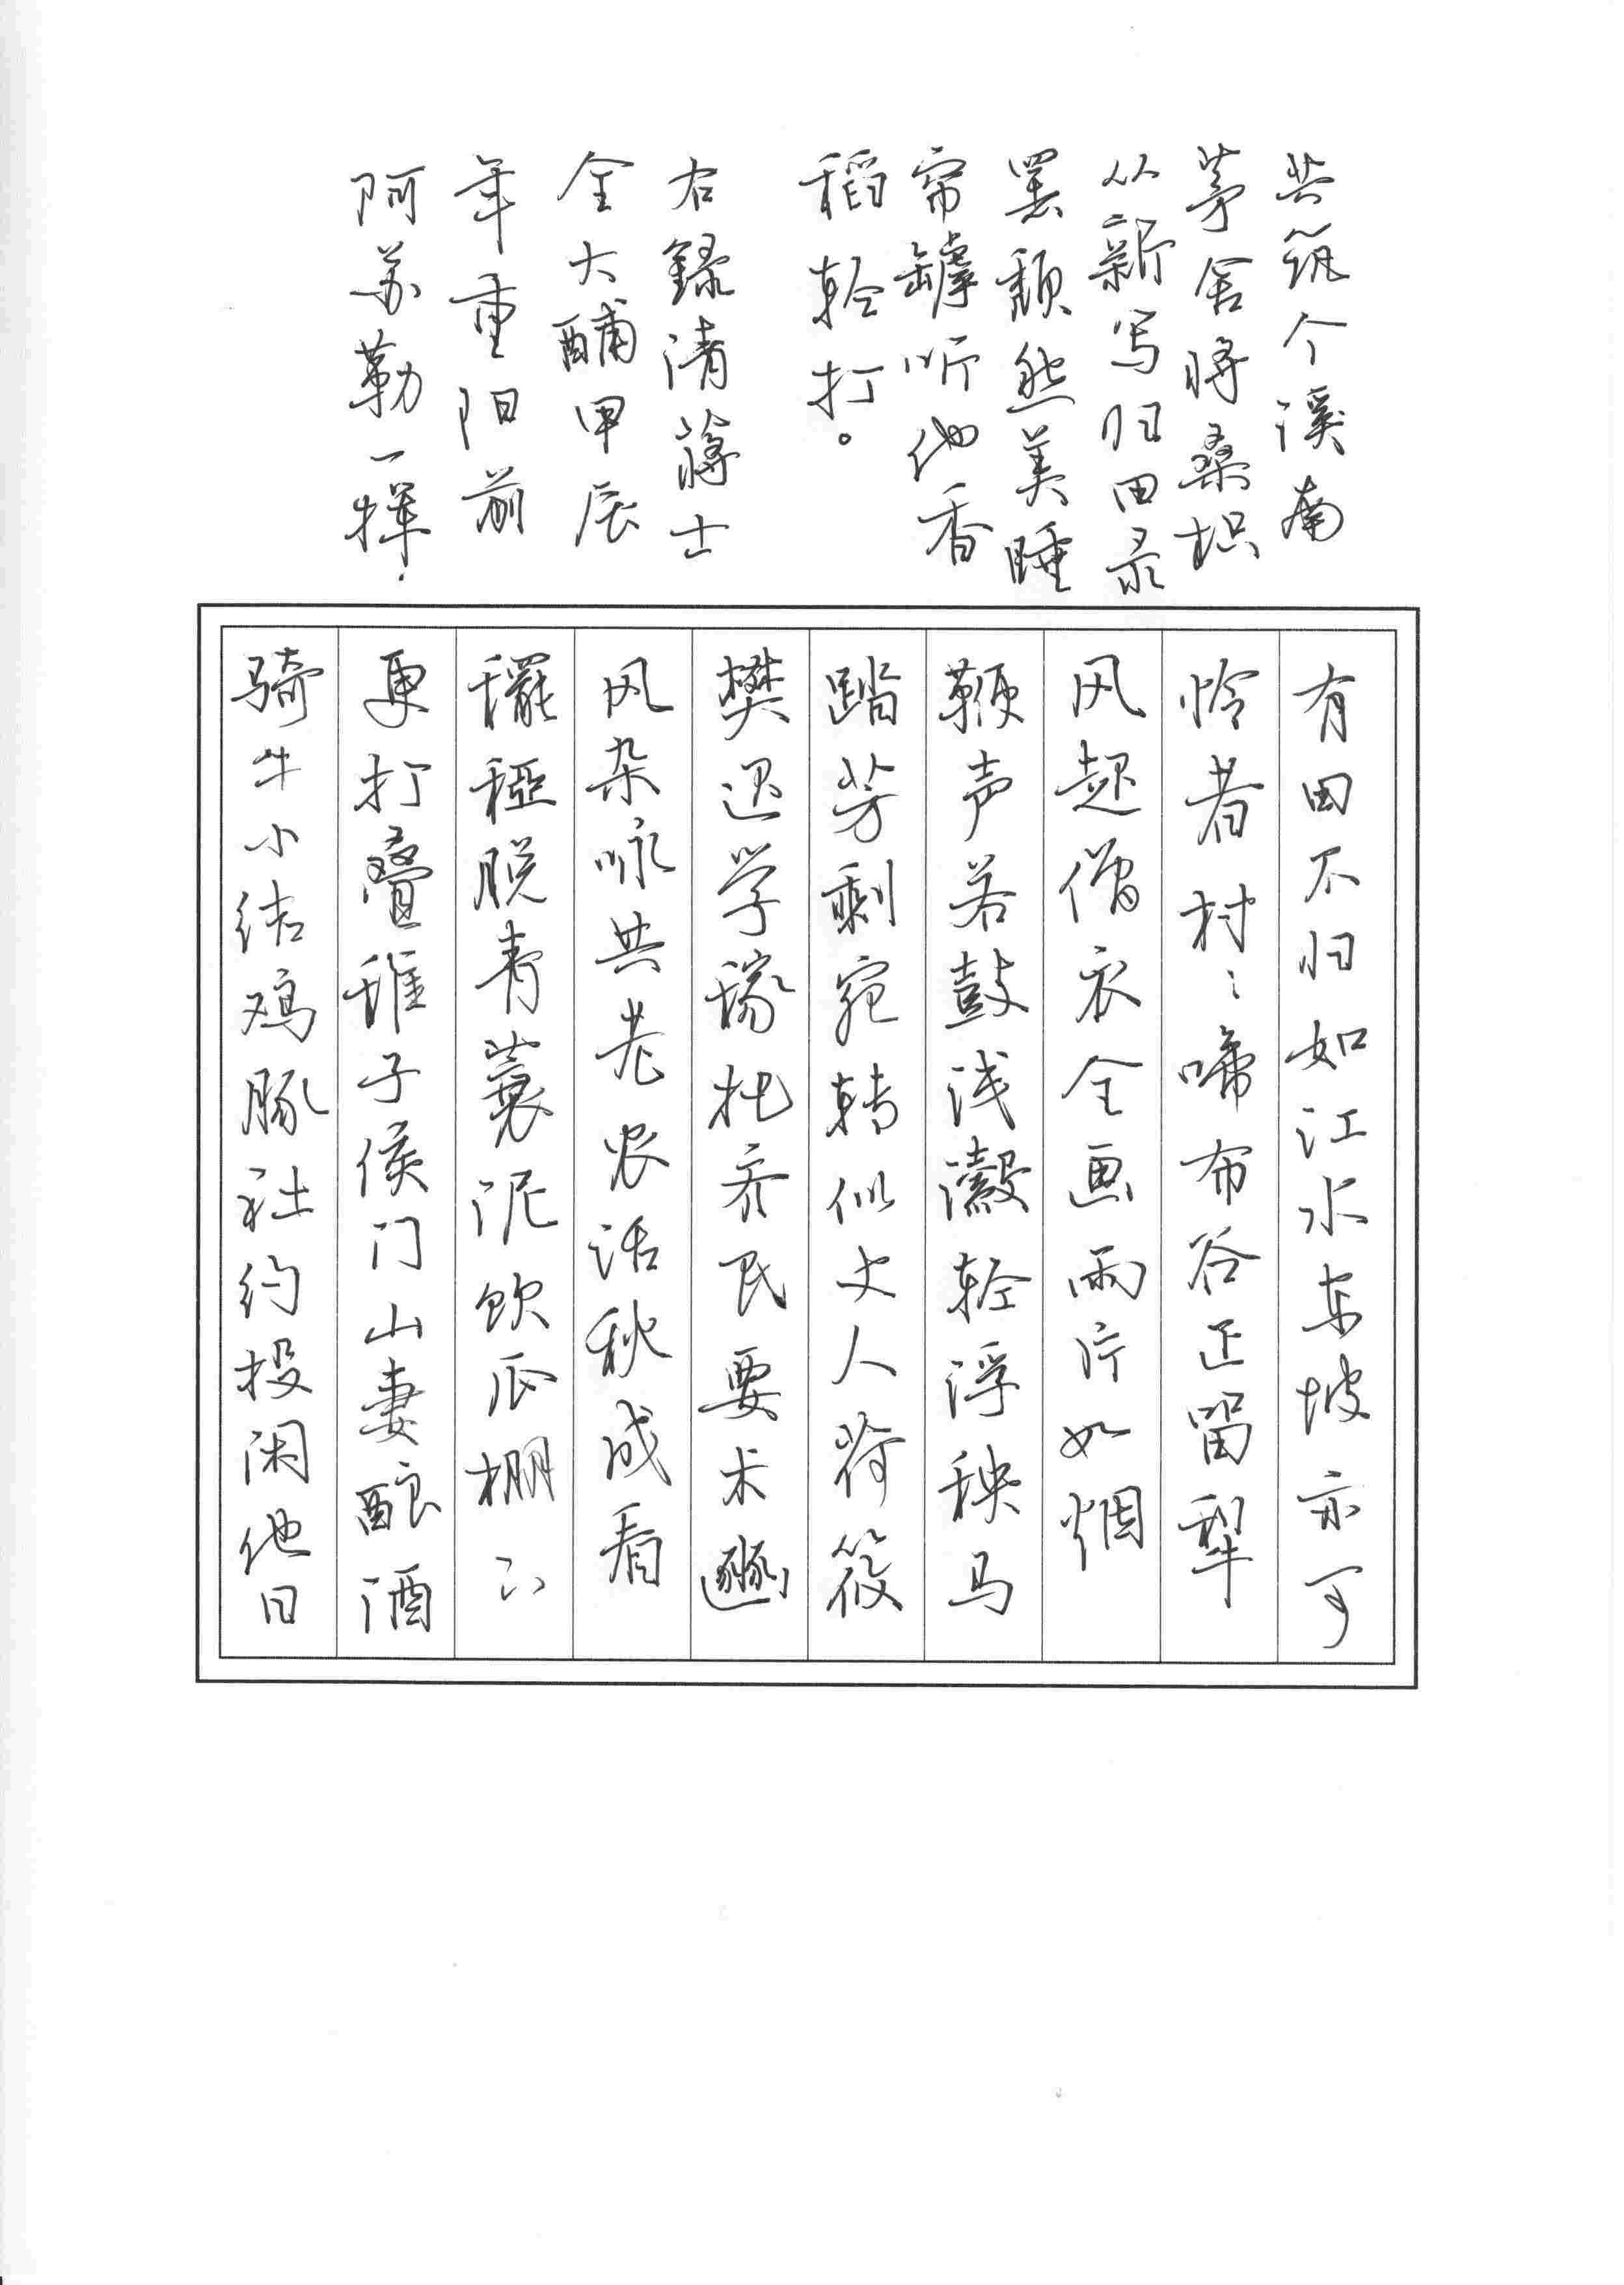 有田不归如江水东坡亦可
怜者村〻啼布谷正留犁
风起僧衣全画雨疗如烟
鞭声若鼓浅瀫轻浮秧马
踏芳剩宛转似丈人荷筱
樊迟学稼托齐民要术豳
风杂咏共老农话秋成看
䆉稏脱青蓑泥饮瓜棚下
更打叠稚子侯门山妻酿酒
骑牛小结鸡豚社约投闲他日
共筑个溪南
茅舍将桑
从新写归田录
罢颓然美睡
帘罅听他香
稻轻打。
右録清蒋士
全大酺甲辰
年重阳前
阿苏勒一挥.